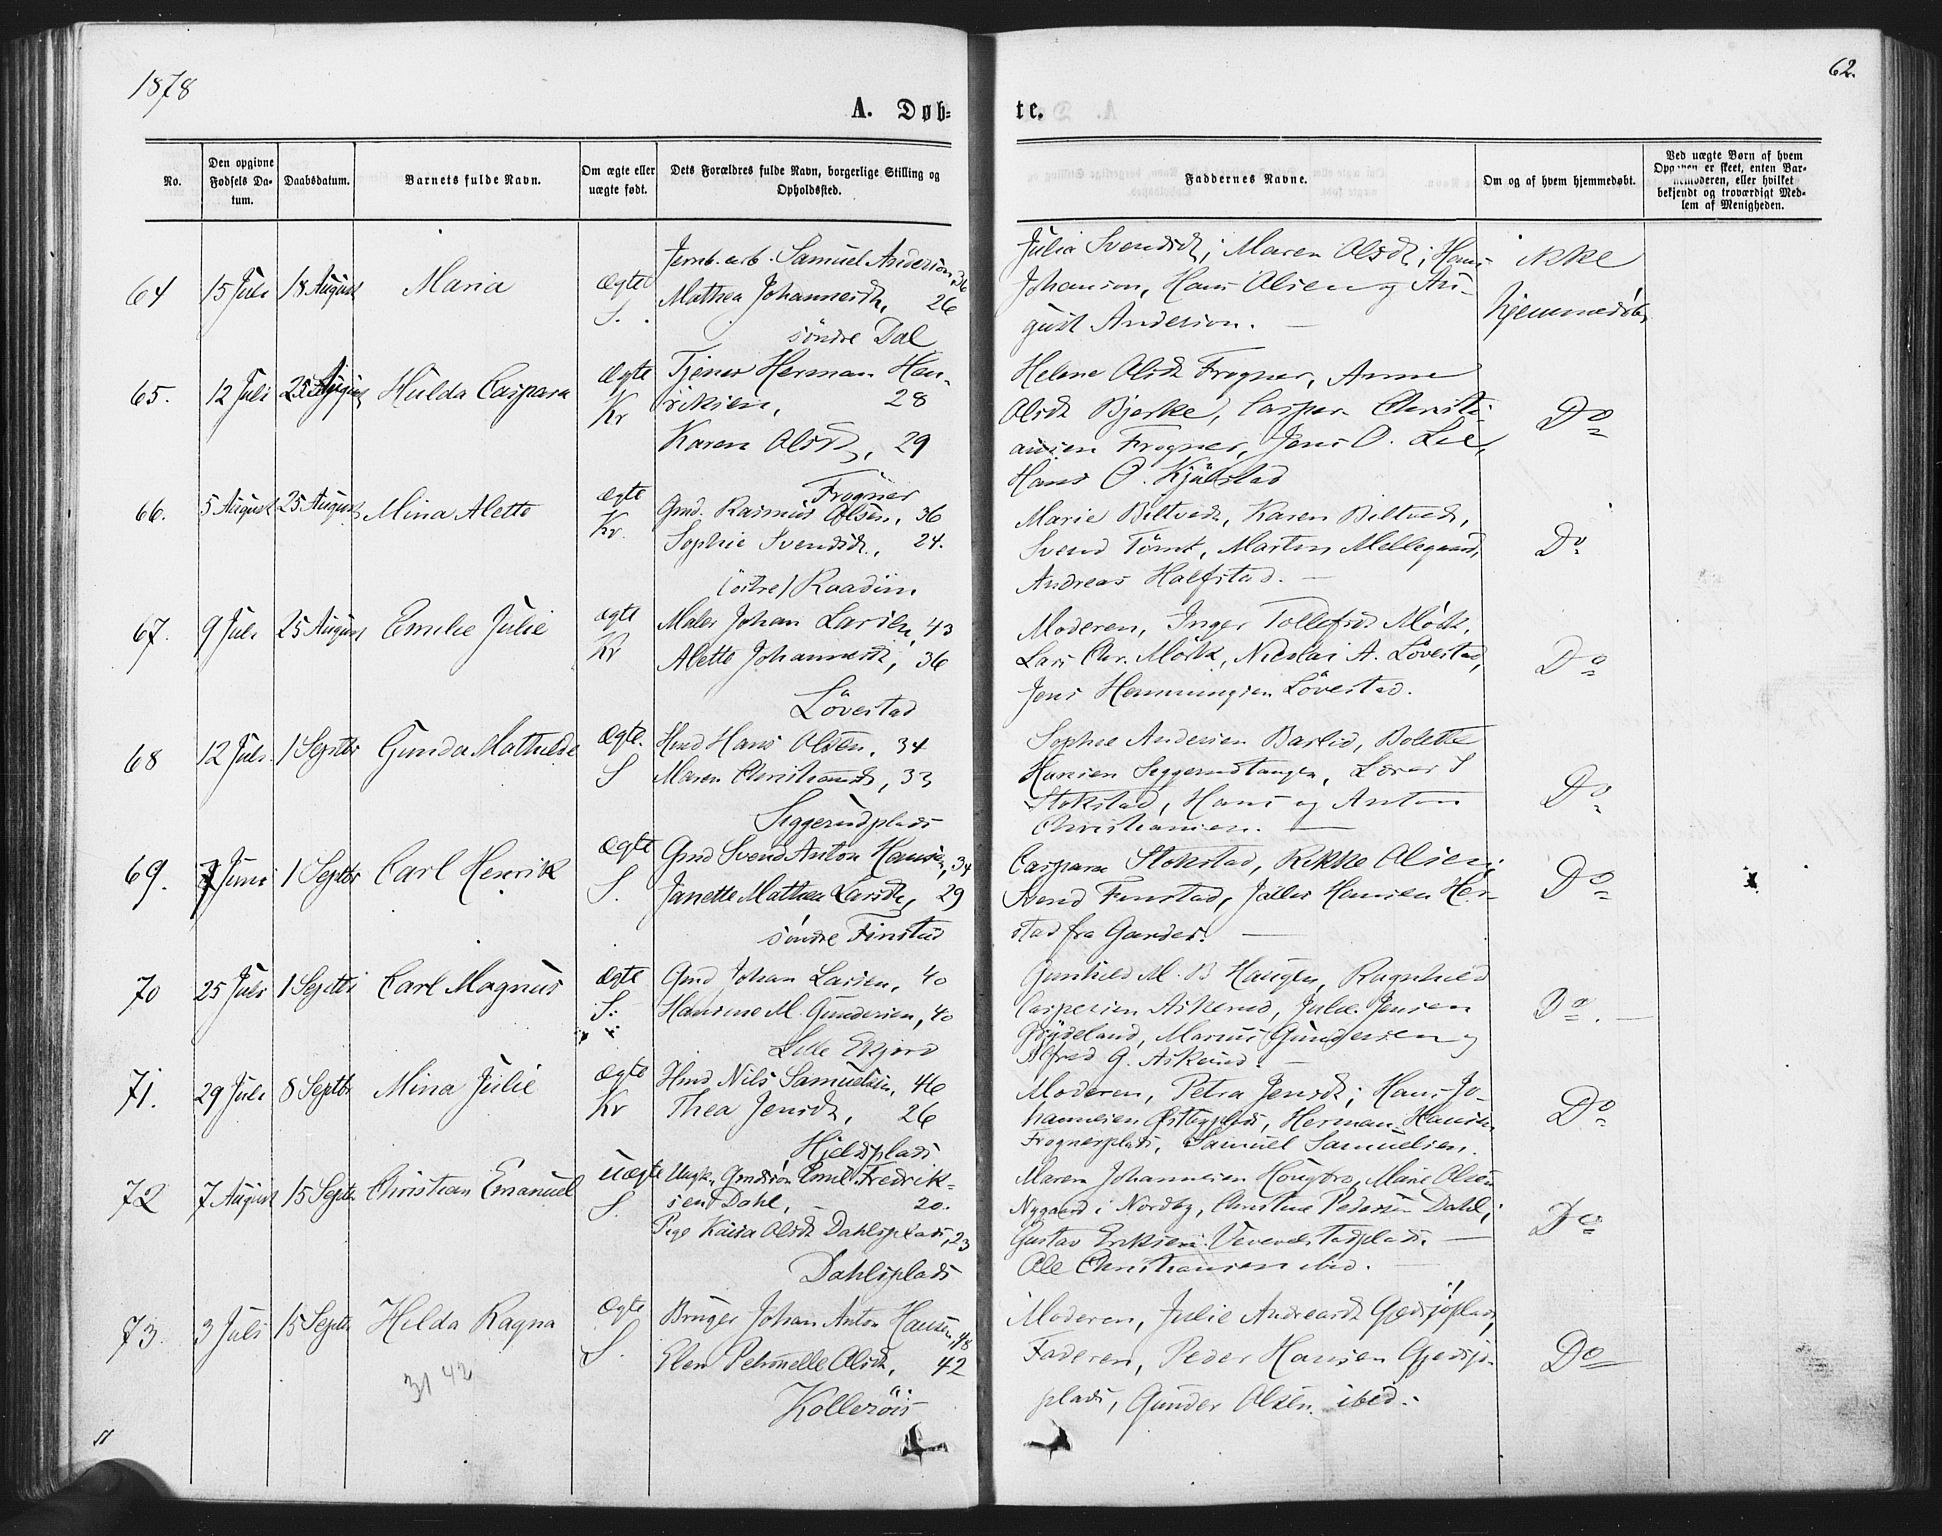 1878
62.
A. Døb=
te.
No.
Den opgivne Fødsels Da-tum.
Daabsdatum.
Barnets fulde Navn.
Om ægte eller uægte født.
Dets Forældres fulde Navn, borgerlige Stilling og Opholdssted.
Faddernes Navne.
Om og af hvem hjemmedøbt.
Ved uægte Børn af hvem Opgaven er skeet, enten Bar-nemoderen, eller hvilket bekjendt og troværdigt Med-lem af Menigheden.
64 15 Juli 18 August Maria ægte S.
Jernb. arb. Samuel Anderson, 36
Mathea Johannesdt, 26
söndre Dal
Julia Svendsdt; Maren Olsdt; Hans
Johanson, Hans Olsen og Au-
gust Anderson. —
ikke
hjemmedöbt
65. 12 Juli 25 August Hulda Caspara ægte Kr
Tjener Herman Hen-
riksen, 28
Karen Olsdt, 29
Frogner
Helene Olsdt Frogner, Anne
Olsdt Bjerke, Casper Christi-
ansen Frogner, Jens O. Lie,
Hans O. Kjölstad
Do
66. 5 August 25 August Mina Alette ægte Kr.
Gmd. Rasmus Olsen, 36
Sophie Svendsdt, 24.
(östre) Raadim
Marie Biltvedt, Karen Biltvedt,
Svend Tömt, Martin Mellegaard,
Andreas Halfstad. —
Do
67. 9 Juli 25 August Emilie Julie ægte Kr
Maler Johan Larsen, 43
Alette Johannesdt, 36
Lövestad
Moderen, Inger Tollefsd Mörk,
Lars Chr. Mörk, Nicolai A. Lövestad,
Jens Henningsen Lövestad.
Do
68 12 Juli 1 Septbr Gunda Mathilde ægte. S
Hmd Hans Olsen, 34
Maren Christiansdt, 33
Siggerudplads
Sophie Andersen Barlid, Bolette
Hansen Siggerudtangen, Lærer S
Stokstad, Hans og Anton
Christiansen. —
Do
69. Juni 1 Septbr Carl Henrik ægte S.
Gmd Svend Anton Hansen, 34
Janette Mathea Larsdt, 29
söndre Finstad
Caspara Stokstad, Rikke Olsen;
Svend Finstad, Hansen Her-
stad fra Garder. —
Do
70 25 Juli 1 Septbr Carl Magnus ægte S.
Gmd Johan Larsen, 40
Hansine M. Gundersen, 40
Lille Ekjord
Gunhild M. B Haugen, Ragnhild
Caspersen Askerud, Julie Jensen
Grödeland, Marius Gundersen og
Alfred G. Askerud. —
Do. —
71. 29 Juli 8 Septbr Mina Julie ægte Kr
Hmd Nils Samuelsen, 46
Thea Jensdt, 26
Hjelsplads
Moderen, Petra Jensdt; Hans Jo-
hannesen Östbyplads, Herman Hansen
Frognerplads, Samuel Samuelsen.
Do
72 7 August 15 Septbr Christian Emanuel uægte S.
Ungk. Gmdsön Emil Fredrik-
sen Dahl, — 20.
Pige Kaisa Olsdt Dahlsplads, 23
Dahlsplads
Maren Johannesen Hougbro, Marie Olsen
Nygaard i Nordby, Christine Pedersen Dahl;
Gustav Eriksen Vevelstadplads. —
Ole Christiansen ibid. —
Do
73. 3 Juli 15 Septbr Hilda Ragna ægte S.
Bruger Johan Anton Hansen, 48
Elen Petronelle Olsdt, 42
Kolleröis
Moderen, Julie Andreasdt Gjedsjöplads,
Faderen, Peder Hansen Gjedsjö-
plads, Gunder Olsen ibid.
Do
31 42